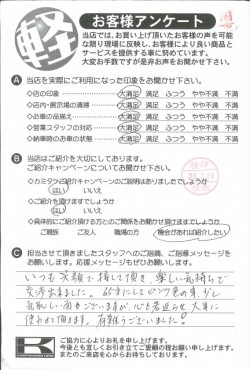 軽
お客様アンケート
当店では、お買い上げ頂いたお客様の声を可能
な限り現場に反映し、お客様により良い商品と
サービスを提供する事に努めています。
大変お手数ですが是非お声をお聞かせ下さい。
A 当店を実際にご利用になった印象をお聞かせ下さい。
◇店の印象 大満足 満足 ふつう やや不満 不満
◇店内・展示場の清掃 大満足 満足 ふつう やや不満 不満
◇お車の品揃え 大満足 満足 ふつう やや不満 不満
◇営業スタッフの対応 大満足 満足 ふつう やや不満 不満
◇納車時のお車の状態 大満足 満足 ふつう やや不満 不満
B 当店はご紹介を大切にしております。
ご紹介キャンペーンについてお聞かせ下さい。
◇カミタウご紹介キャンペーンのご説明はありましたでしょうか
はい いいえ
◇ご紹介を頂けますでしょうか
はい いいえ
◇具体的にご紹介頂ける方とのご関係をお聞かせ頂けますでしょうか
ご親族 ご友人 職場の方 機会があれば紹介したい
C 担当させて頂きましたスタッフへのご指摘、ご指導メッセージを
お願いします。応援メッセージもぜひお願いします。
いつも笑顔で接して頂き、楽しい気持ちで
交渉出来ました。65才にして ピンク色の車、少し
気恥しい面もございますが、心も若返らせ 大事に
使わせて頂きます。有難うございました!
K
ご協力に心よりお礼を申し上げます。
今後とも宜しくお引き立てご愛顧の程お願い申し上げます。
またのご来店を心からお待ちしております。